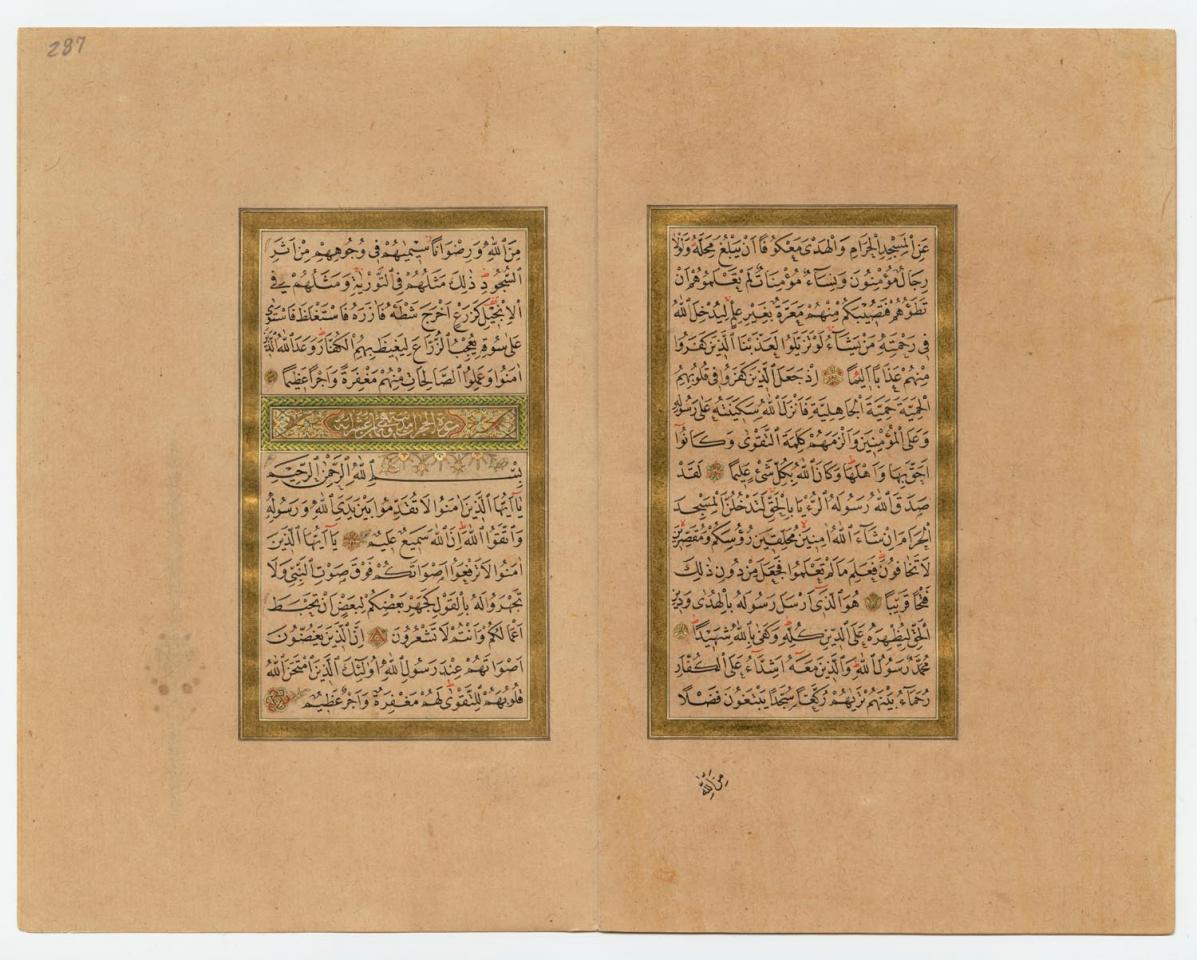 عَنِ الْمَسْجِدِ الْحَرَامِ وَالْهَدْىَ مَعْكُوفًا اَنْ يَبْلُغَ مَحِلَّهُ وَلَوْلَا
رِجَالٌ مُؤْمِنُونَ وَنِسَاءٌ مُؤْمِنَاتٌ لَمْ تَعْلَمُوهُمْ اَنْ
تَطَؤُهُمْ فَتُصِيبَكُمْ مِنْهُمْ مَعَرَّةٌ بِغَيْرِ عِلْمٍ لِيُدْخِلَ اللهُ
فِى رَحْمَتِهِ مَنْ يَشَاءُ لَوْ تَزَيَّلُوا لَعَذَّبْنَا الَّذِينَ كَفَرُوا
مِنْهُمْ عَذَابًا اَلِيمًا اِذْ جَعَلَ الَّذِينَ كَفَرُوا فِى قُلُوبِهِمُ
الْحَمِيَّةَ حَمِيَّةَ الْجَاهِلِيَّةِ فَاَنْزَلَ اللهُ سَكِينَتَهُ عَلٰى رَسُولِهِ
وَعَلَى الْمُؤْمِنِينَ وَاَلْزَمَهُمْ كَلِمَةَ التَّقْوٰى وَكَانُوا
اَحَقَّ بِهَا وَاَهْلَهَا وَكَانَ اللهُ بِكُلِّ شَىْءٍ عَلِيمًا لَقَدْ
صَدَقَ اللهُ رَسُولَهُ الرُّءْيَا بِالْحَقِّ لَتَدْخُلُنَّ الْمَسْجِدَ
الْحَرَامَ اِنْ شَاءَ اللهُ اٰمِنِينَ مُحَلِّقِينَ رُؤُسَكُمْ وَمُقَصِّرِينَ
لَا تَخَافُونَ فَعَلِمَ مَا لَمْ تَعْلَمُوا فَجَعَلَ مِنْ دُونِ ذٰلِكَ
فَتْحًا قَرِيبًا هُوَ الَّذِى اَرْسَلَ رَسُولَهُ بِالْهُدٰى وَدِينِ
الْحَقِّ لِيُظْهِرَهُ عَلَى الدِّينِ كُلِّهِ وَكَفٰى بِاللهِ شَهِيدًا
مُحَمَّدٌ رَسُولُ اللهِ وَالَّذِينَ مَعَهُ اَشِدَّاءُ عَلَى الْكُفَّارِ
رُحَمَاءُ بَيْنَهُمْ تَرٰيهُمْ رُكَّعًا سُجَّدًا يَبْتَغُونَ فَضْلًا
مِنَ اللهِ
287
مِنَ اللهِ وَرِضْوَانًا سِيمٰيهُمْ فِى وُجُوهِهِمْ مِنْ اَثَرِ
السُّجُودِ ذٰلِكَ مَثَلُهُمْ فِى التَّوْرٰيةِ وَمَثَلُهُمْ فِى
الْاِنْجِيلِ كَزَرْعٍ اَخْرَجَ شَطْئَهُ فَاٰزَرَهُ فَاسْتَغْلَظَ فَاسْتَوٰى
عَلٰى سُوقِهِ يُعْجِبُ الزُّرَّاعَ لِيَغِيظَ بِهِمُ الْكُفَّارَ وَعَدَ اللهُ الَّذِينَ
اٰمَنُوا وَعَمِلُوا الصَّالِحَاتِ مِنْهُمْ مَغْفِرَةً وَاَجْرًا عَظِيمًا
بِسْمِ اللهِ الرَّحْمٰنِ الرَّحِيمِ
يَا اَيُّهَا الَّذِينَ اٰمَنُوا لَا تُقَدِّمُوا بَيْنَ يَدَىِ اللهِ وَرَسُولِهِ
وَاتَّقُوا اللهَ اِنَّ اللهَ سَمِيعٌ عَلِيمٌ يَا اَيُّهَا الَّذِينَ
اٰمَنُوا لَا تَرْفَعُوا اَصْوَاتَكُمْ فَوْقَ صَوْتِ النَّبِىِّ وَلَا
تَجْهَرُوا لَهُ بِالْقَوْلِ كَجَهْرِ بَعْضِكُمْ لِبَعْضٍ اَنْ تَحْبَطَ
اَعْمَالُكُمْ وَاَنْتُمْ لَا تَشْعُرُونَ اِنَّ الَّذِينَ يَغُضُّونَ
اَصْوَاتَهُمْ عِنْدَ رَسُولِ اللهِ اُولٰئِكَ الَّذِينَ امْتَحَنَ اللهُ
قُلُوبَهُمْ لِلتَّقْوٰى لَهُمْ مَغْفِرَةٌ وَاَجْرٌ عَظِيمٌ